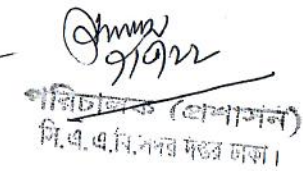 ৭/৭/২২
পরিচালক (প্রশাসন)
সি.এ.এ.বি.সদর দপ্তর ঢাকা।